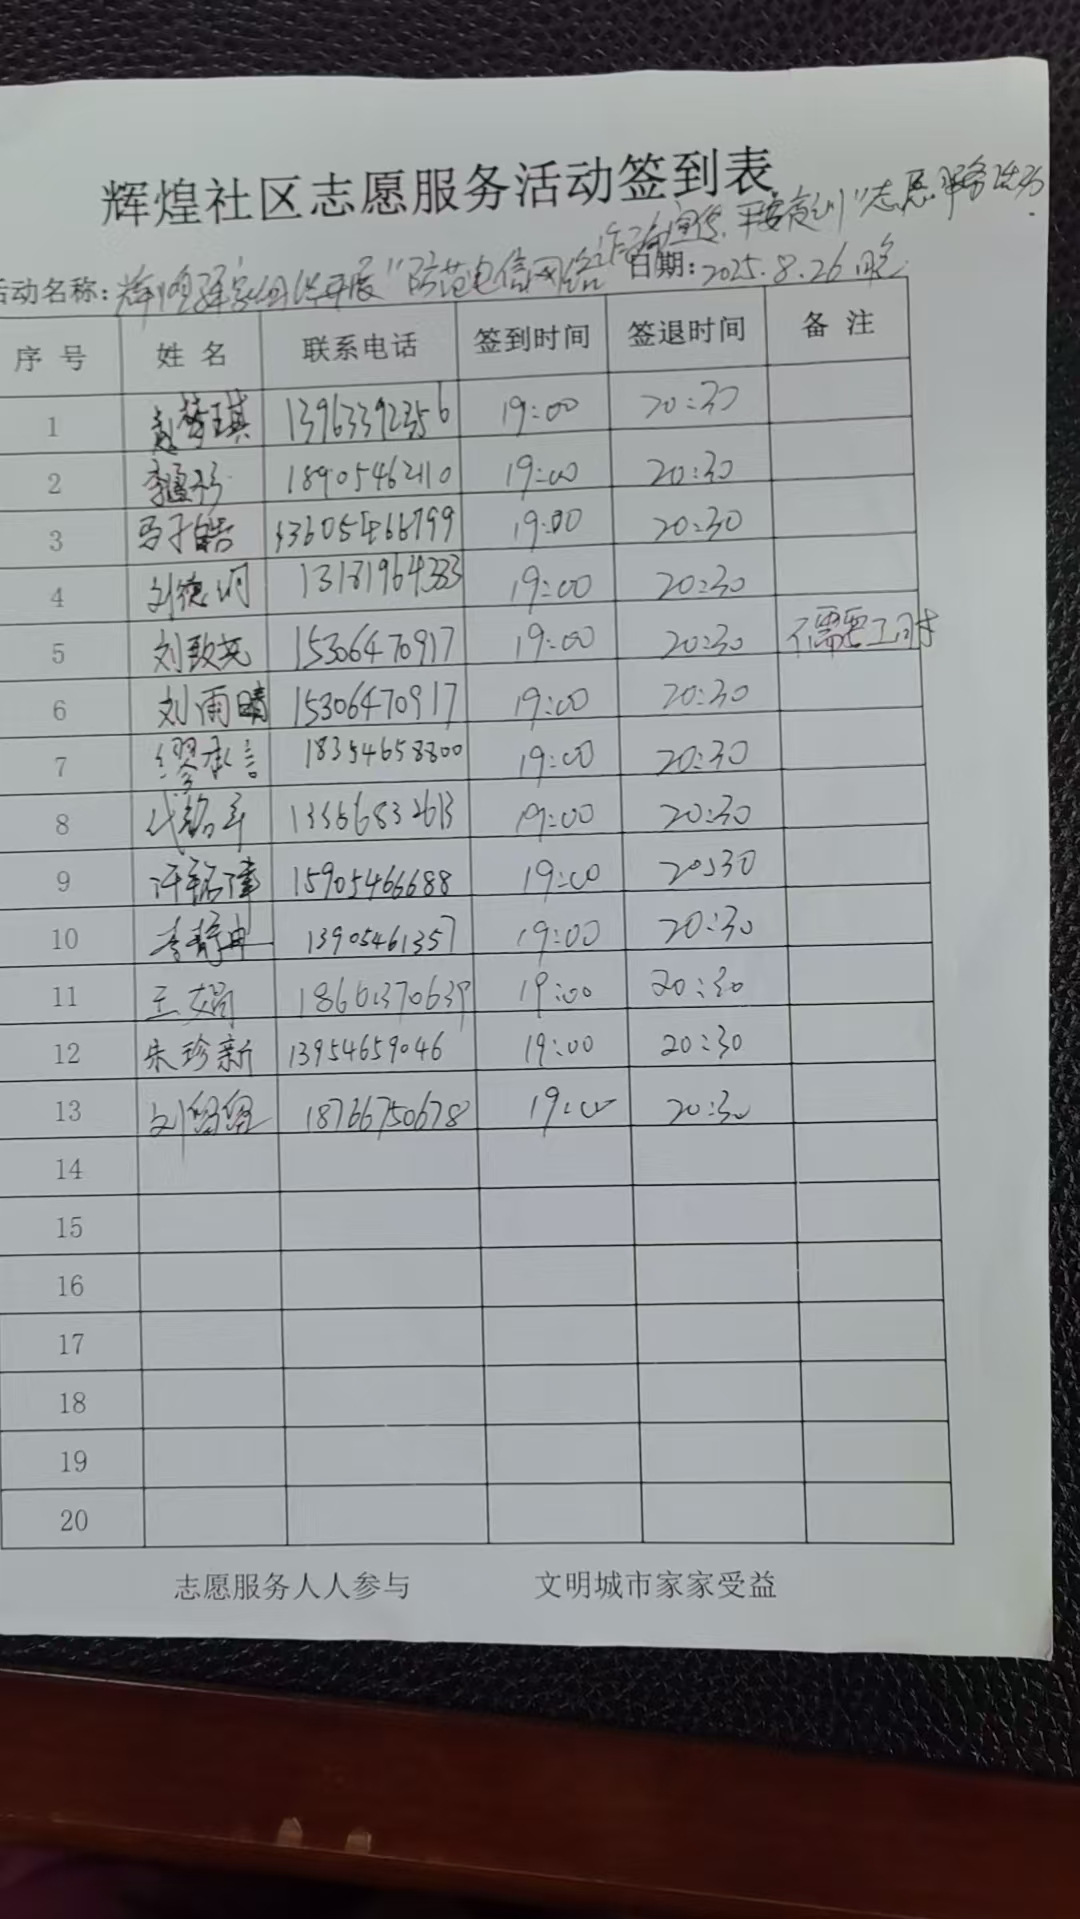 辉煌社区志愿服务活动签到表
活动名称: 开展"防范电信网络诈骗宣传,平安夜训"志愿服务活动
日期: 2025.8.26 晚
序号 姓名 联系电话 签到时间 签退时间 备注
1 赵梦琪 13963392356 19:00 20:30
2 18905462110 19:00 20:30
3 马子皓 13605466799 19:00 20:30
4 刘德 13181964333 19:00 20:30
5 刘致 15306470917 19:00 20:30 不需要工时
6 刘雨晴 15306470917 19:00 20:30
7 缪承言 18354658800 19:00 20:30
8 代铭 13366832613 19:00 20:30
9 许铭 15905466688 19:00 20:30
10 李静 13905461357 19:00 20:30
11 王 19:00 20:30
12 朱珍新 13954659046 19:00 20:30
13 刘 18766750678 19:00 20:30
14
15
16
17
18
19
20
志愿服务人人参与 文明城市家家受益